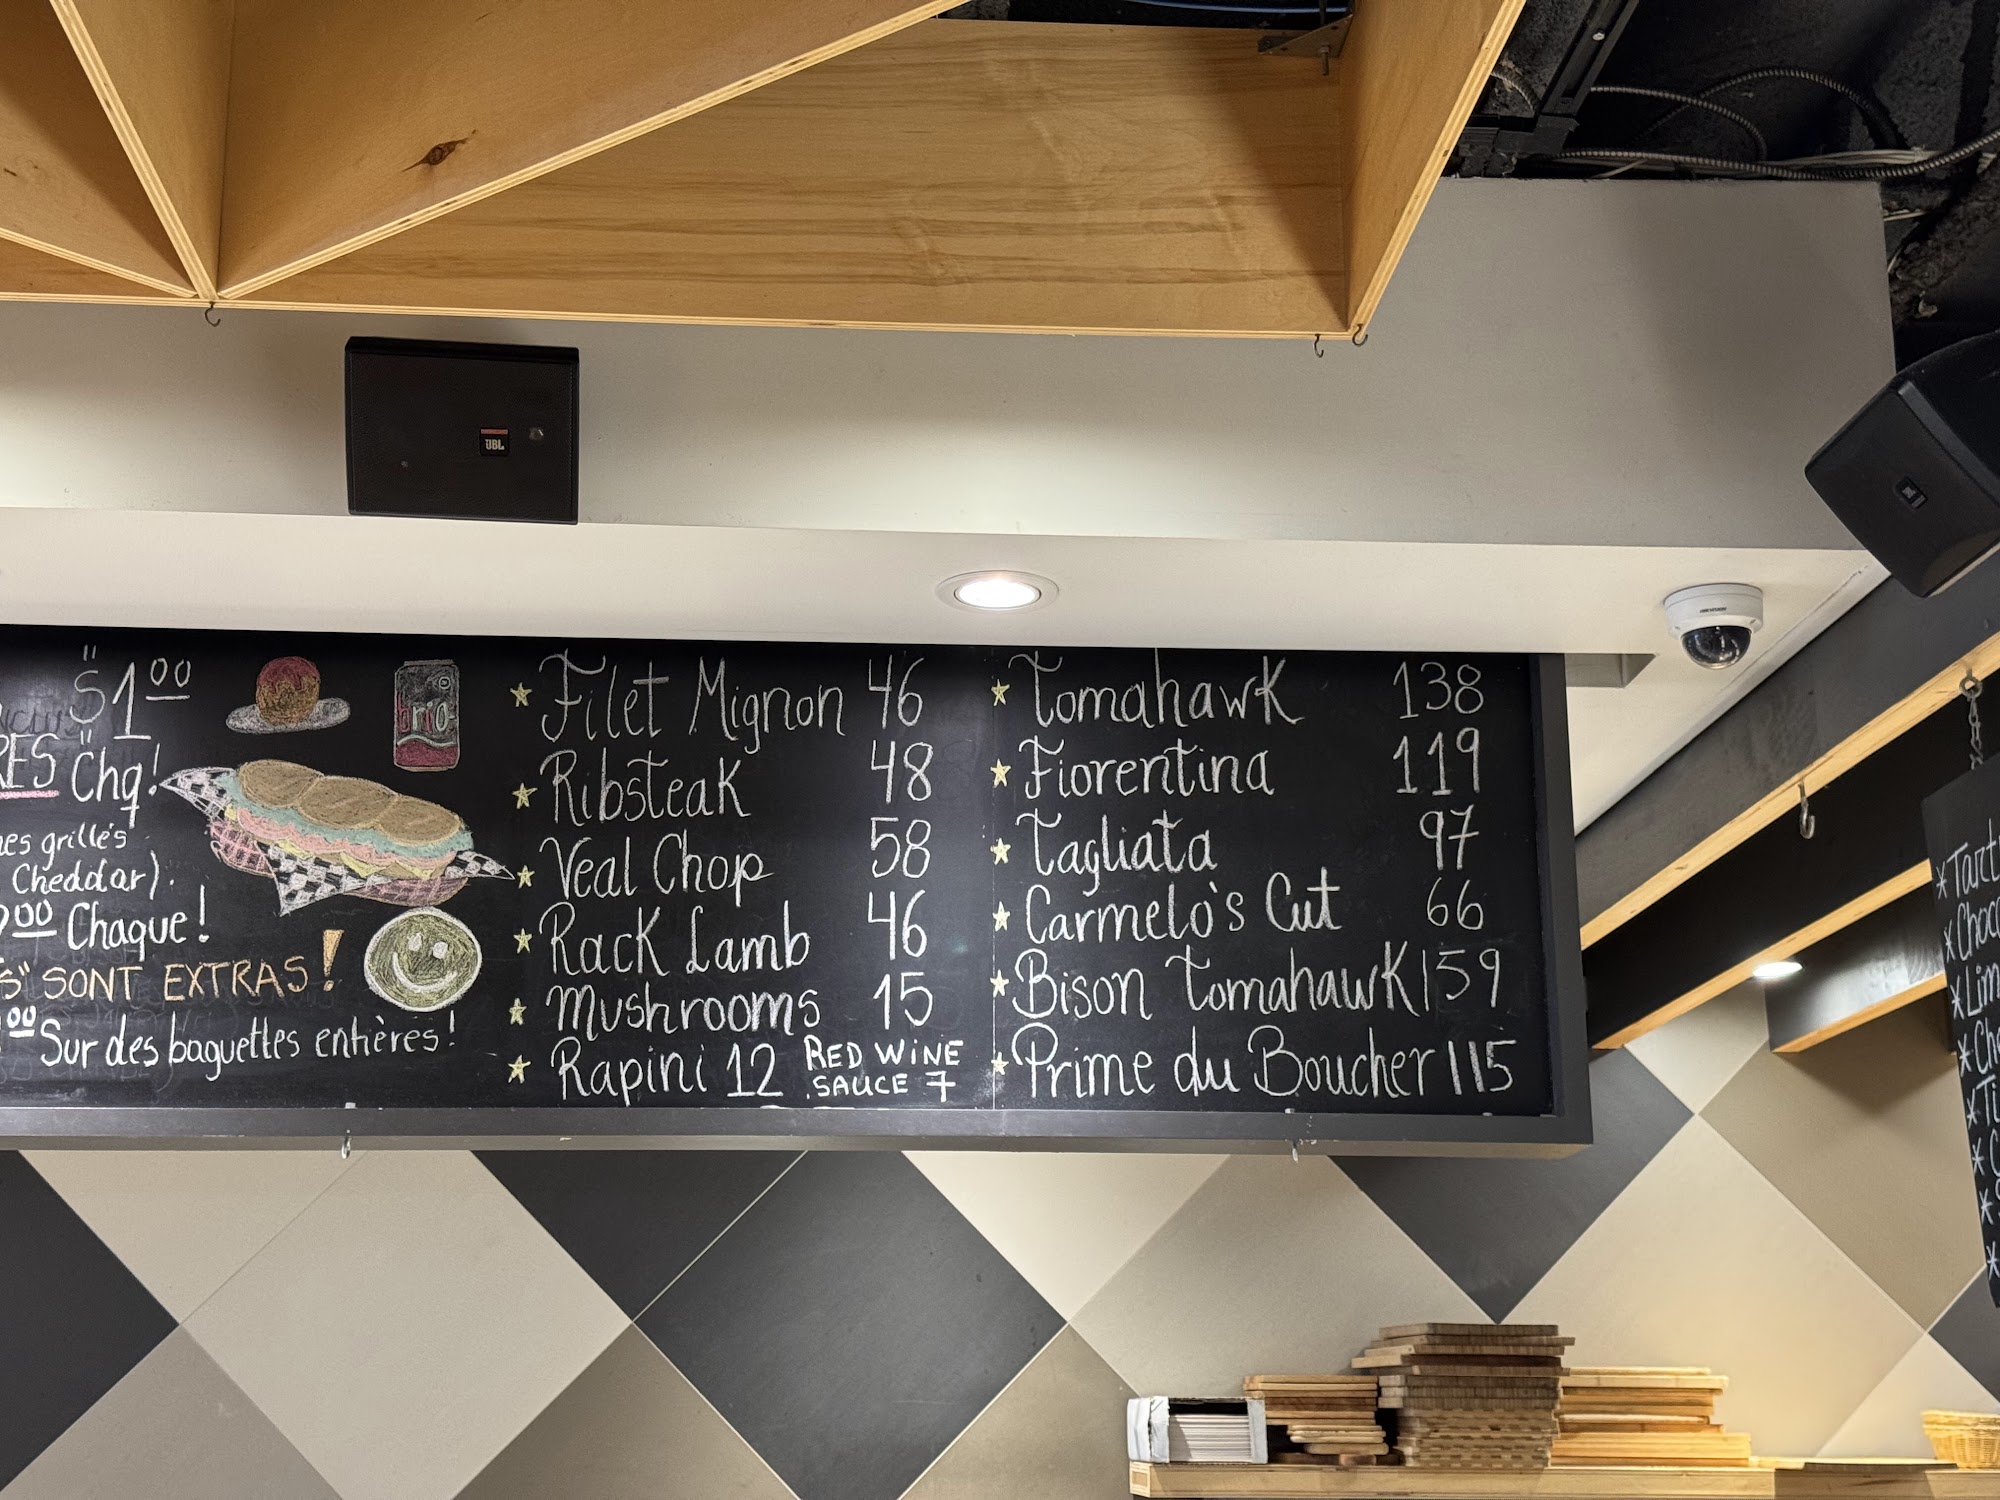 "$1.00"
Chq!
grillés
Cheddar).
00 Chaque!
SONT EXTRAS!
Sur des baguettes entières!
brio
JBL
Filet Mignon 46
Ribsteak 48
Veal Chop 58
Rack Lamb 46
Mushrooms 15
Rapini 12 RED WINE
SAUCE 7
Tomahawk 138
Fiorentina 119
Tagliata 97
Carmelo's Cut 66
Bison Tomahawk 159
Prime du Boucher 115